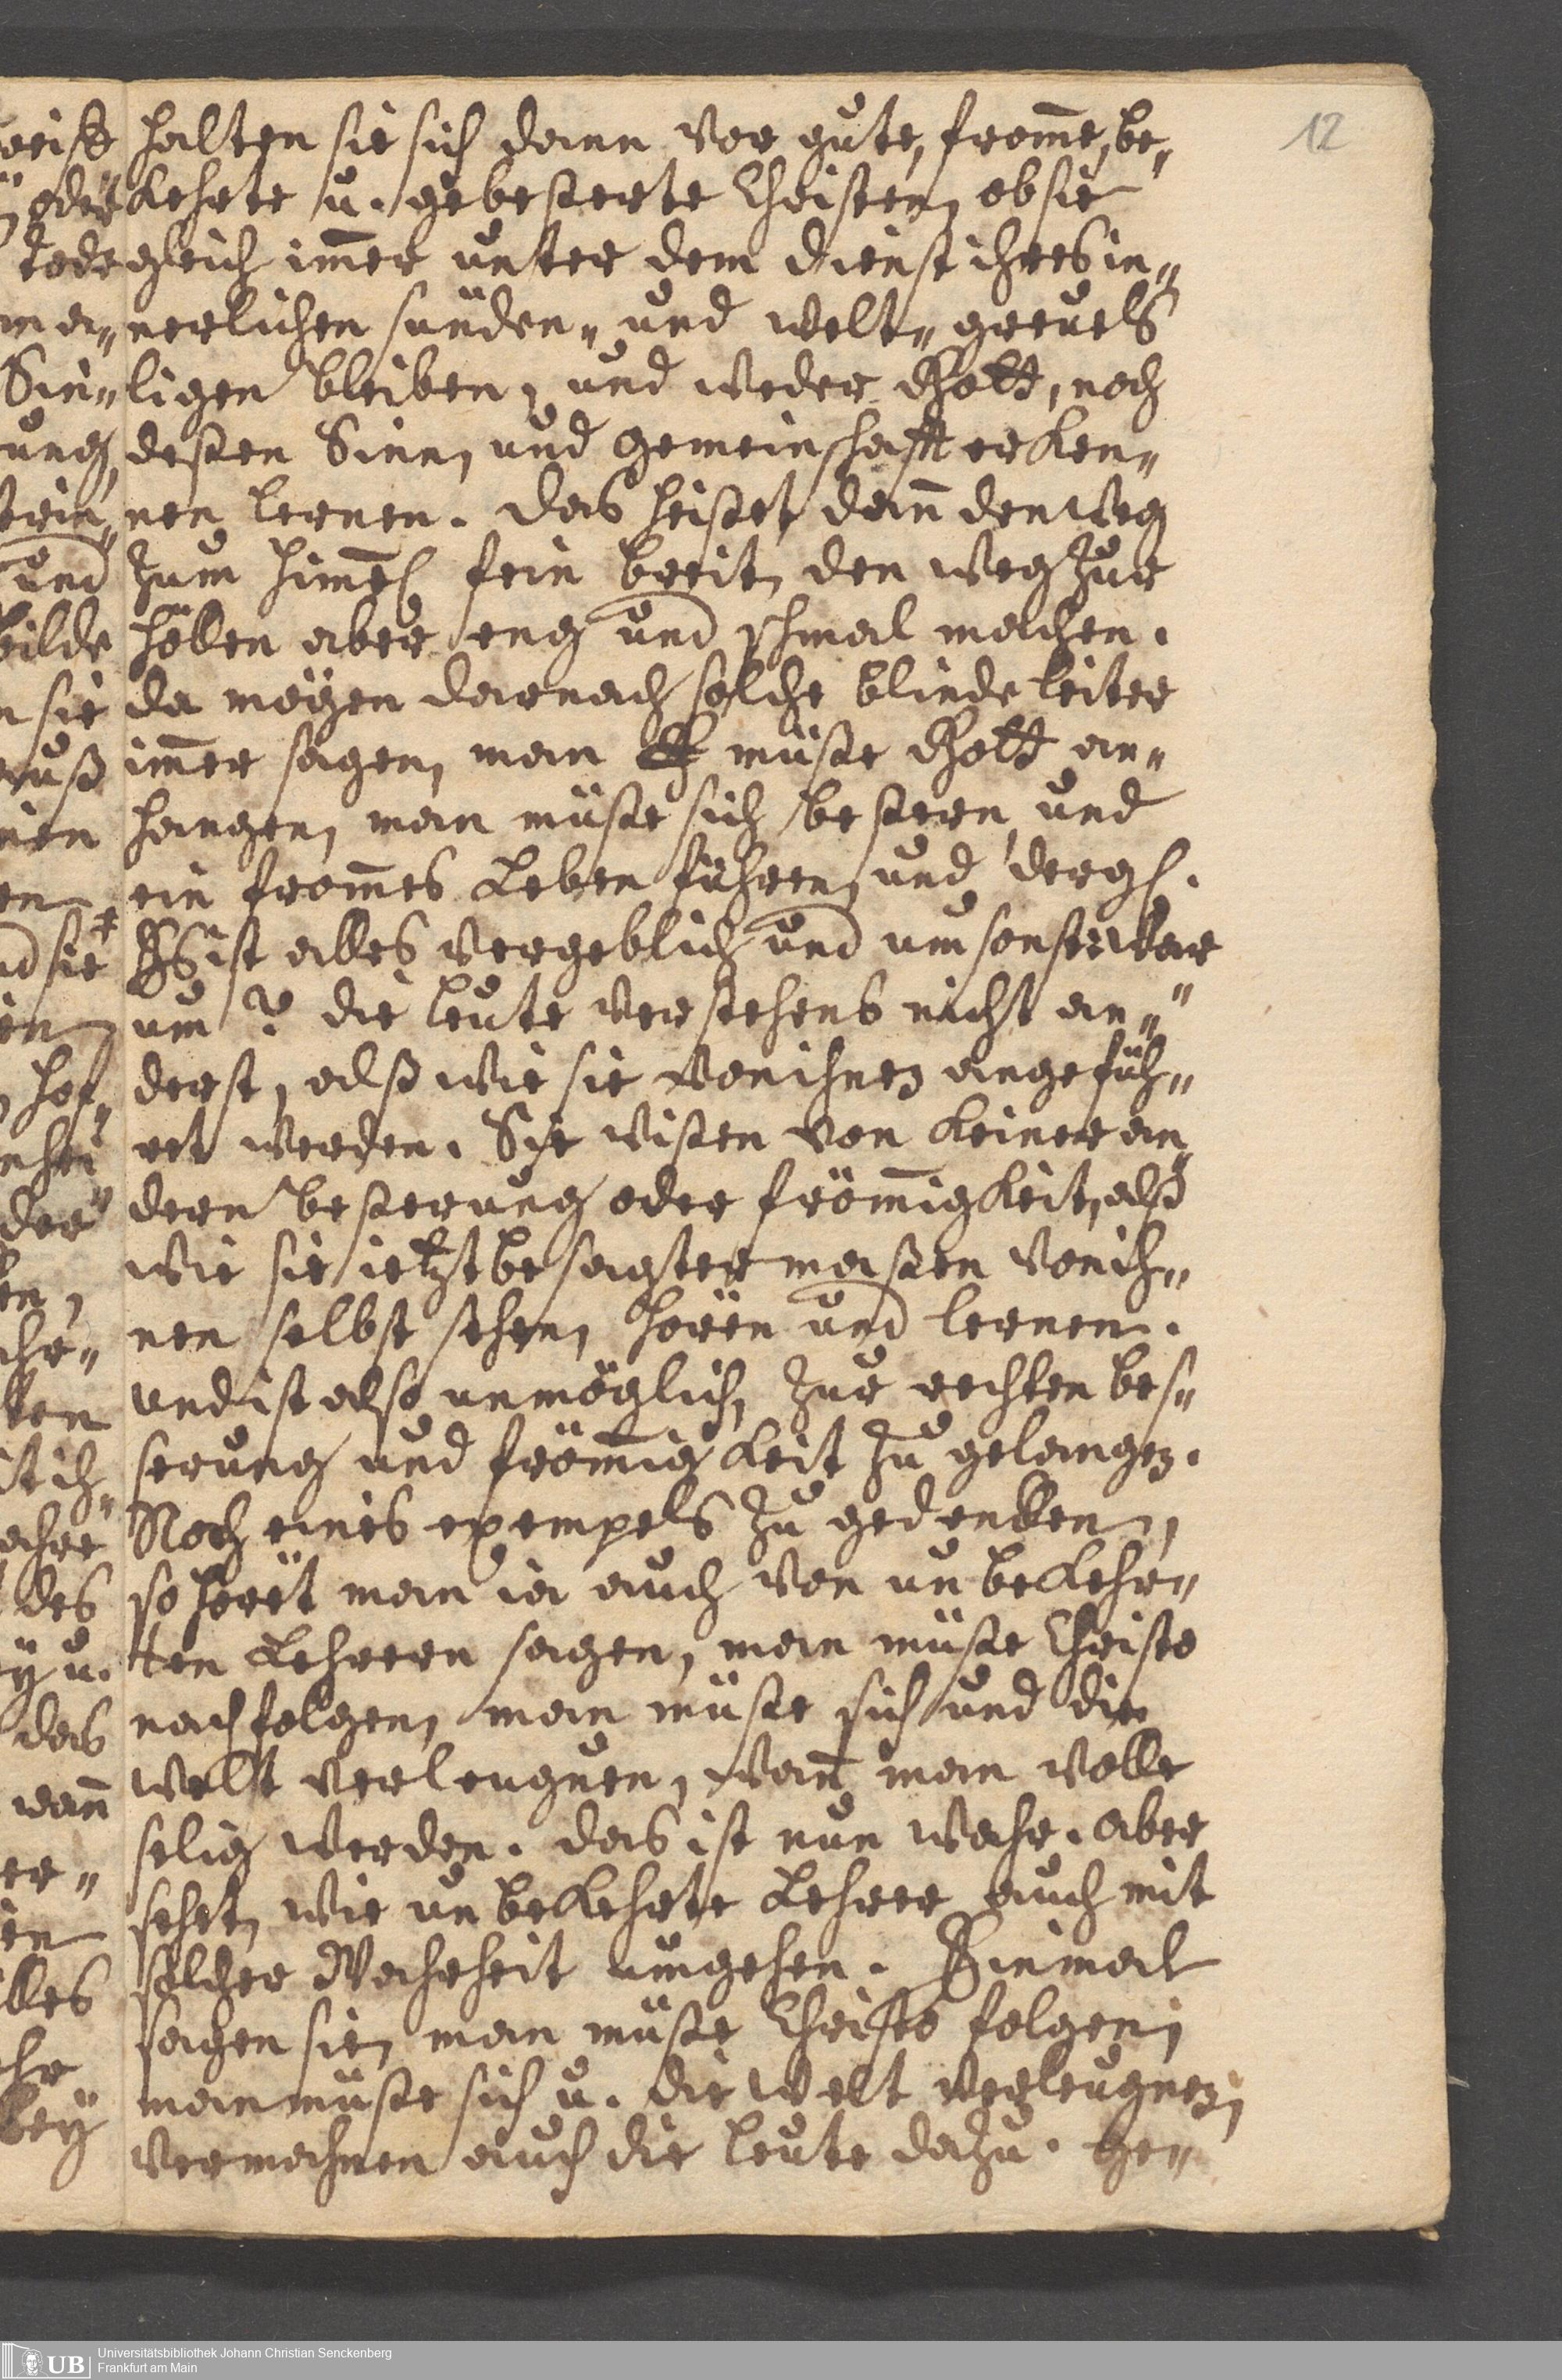 12
halten sie sich dann vor gute, from̄e, be„
kehrte u. gebesserte Christen, ob sie
gleich im̄er unter dem dienst ihres in„
nerlichen sünden„ und welt„ greuels
ligen bleiben, und weder Gott, noch
dessen Sinn, und gemeinschafft erken„
nen lernen. das heisset dan̄ den weg
zum him̄el fein breit, den weg zur
höllen aber eng und schmal machen.
da mögen darnach solche blinde leiter
im̄er sagen, man müsse Gott an„
hangen, man müsse sich bessern und
ein from̄es Leben führen, und dergl.
Es ist alles vergeblich und umsonst. war
um? die leute verstehens nicht an„
derst, alß wie sie von ihnen angefüh„
ret werden. Sie wissen von keiner an„
dern besserung oder fröm̄igkeit, alß
wie sie ietzt besagter massen von ih„
nen selbst sehen, hören und lernen.
und ist also unmöglich, zur rechten bes„
serung und fröm̄igkeit zu gelangen.
Noch eines exempels zu gedenken,
so höret man ia auch von unbekehr„
ten Lehrern sagen, man müsse Christo
nachfolgen, man müsse sich und die
welt verleugnen, wan̄ man wolle
selig werden. das ist nun wahr. aber
sehet, wie unbekehrte Lehrer auch mit
solcher Wahrheit umgehen. Einmal
sagen sie, man müsse Christo folgen,
man müsse sich u. die welt verleugnen,
vermahnen auch die leute dazu. ge„
UB Universitätsbibliothek Johann Christian Senckenberg
Frankfurt am Main